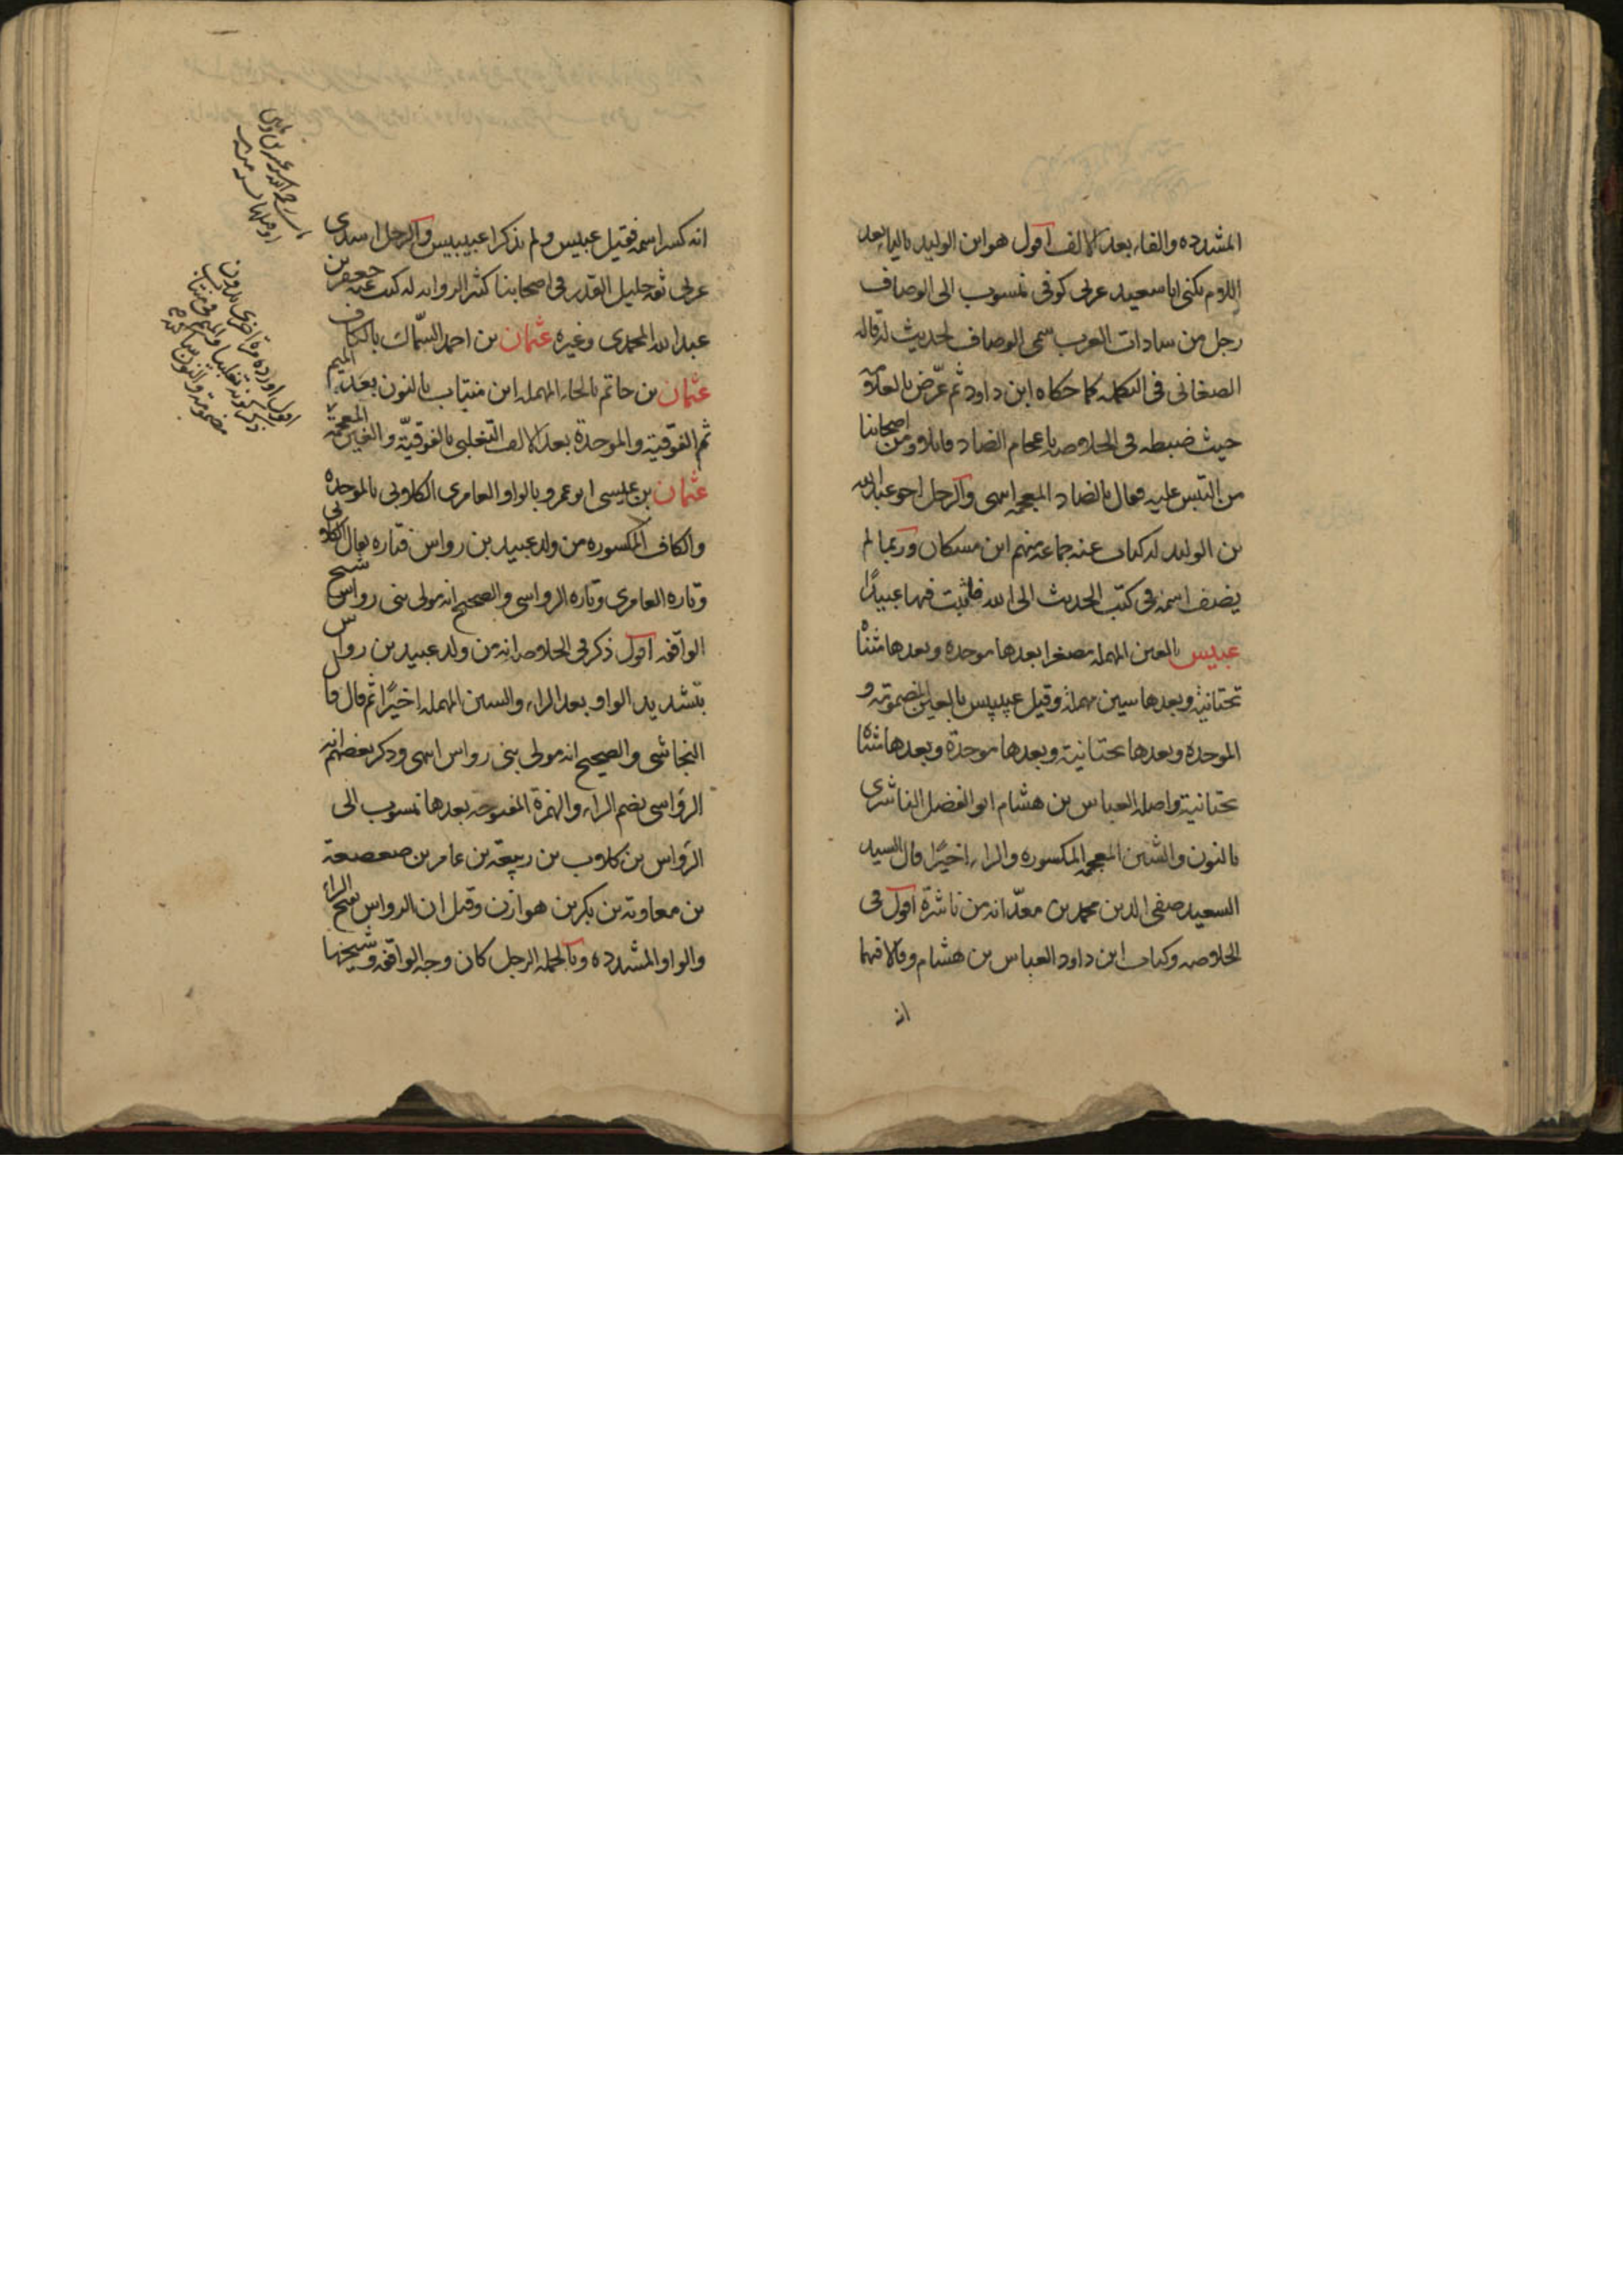 المشدده والفاء بعد الالف اقول هو ابن الوليد بالياء بعد
اللام يكنى ابا سعيد عربى كوفى منسوب الى الوصاف
رجل من سادات العرب سمى الوصاف لحديث له قاله
الصغانى فى التكمله كما حكاه ابن داود ثم عرّض بالعلامه
حيث ضبطه فى الخلاصه باعجام الضاد قائلا ومن اصحابنا
من التبس عليه فقال بالضاد المعجمه انتهى والرجل اخو عبد الله
بن الوليد له كتاب عنه جماعه منهم ابن مسكان وربما لم
يضف اسمه فى كتب الحديث الى الله فلثبت فيها عبيدًا
عبيس بالعين المهمله مصغرا بعدها موحده وبعدها مثناة
تحتانية وبعدها سين مهملة وقيل عبيبيس بالعين المضمومة و
الموحدة وبعدها تحتانية وبعدها موحدة وبعدها مثناة
تحتانية واصله العباس بن هشام ابو الفضل الناشرى
بالنون والشين المعجمه المكسوره والراء اخيرًا قال السيد
السعيد صفى الدين محمد بن معدّ انه من ناشرة اقول فى
الخلاصه وكتاب ابن داود العباس بن هشام وقالا فيهما
انه
انه كسر اسمه فقيل عبيس ولم يذكرا عبيبيس والرجل اسدى
عربى ثقه جليل القدر فى اصحابنا كثير الروايه له كتب عنه جعفر بن
عبد الله المحمدى وغيره عثمان بن احمد السّماك بالكاف
عثمان بن حاتم بالحاء المهمله ابن منتاب بالنون بعد الميم
ثم الفوقية والموحدة بعد الالف التغلبى بالفوقيّة والغين المعجمة
عثمان بن عيسى ابو عمرو بالواو العامرى الكلابى بالموحده
والكاف المكسوره من ولد عبيد بن رواس فتاره يقال الكلابى
وتاره العامرى وتاره الرواسى والصحيح انه مولى بنى رواس شيخ
الواقفه اقول ذكر فى الخلاصه انه من ولد عبيد بن رواس
بتشديد الواو بعد الراء والسين المهمله اخيرًا ثم قال قال
النجاشى والصحيح انه مولى بنى رواس انتهى وذكر بعضهم انه
الرؤاسى بضم الراء والهمزة المفتوحه بعدها منسوب الى
الرؤاس بن كلاب بن ربيعة بن عامر بن صعصعة
بن معاوية بن بكر بن هوازن وقيل ان الرواس بفتح الراء
والواو المشدده وبالجمله الرجل كان وجه الواقفه وشيخها